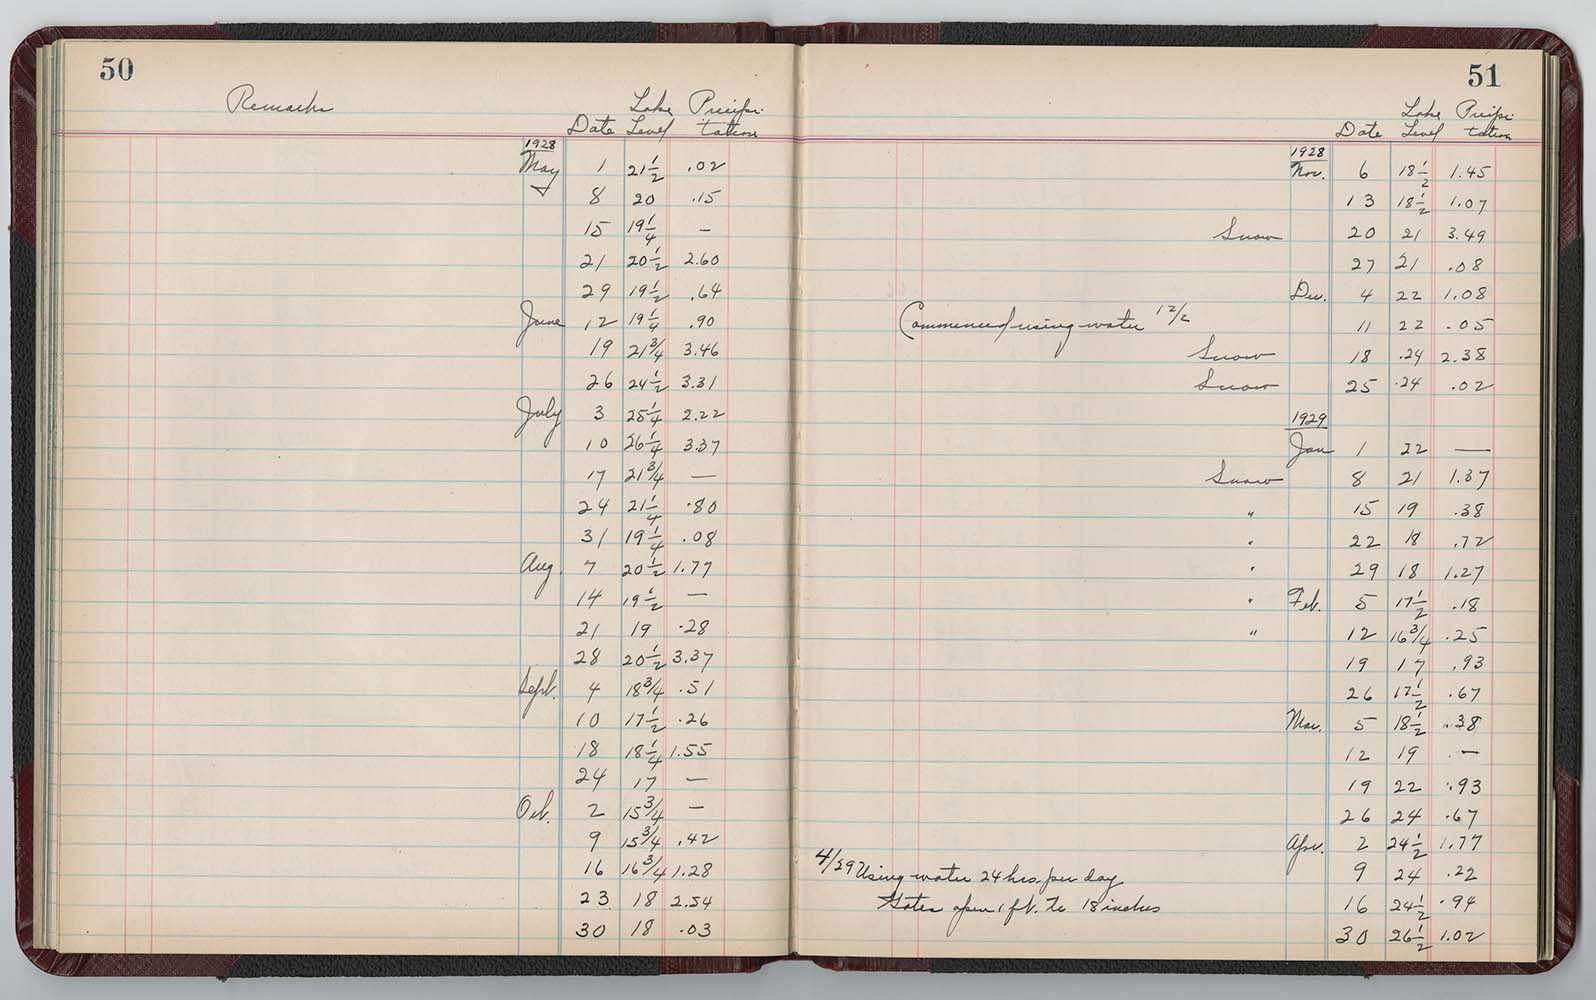 50
Remarks
Lake Precipi-
Date Level tation
1928
May 1 21 1/2 .02
8 20 .15
15 19 1/4 —
21 20 1/2 2.60
29 19 1/2 .64
June 12 19 1/4 .90
19 21 3/4 3.46
26 24 1/2 3.31
July 3 25 1/4 2.22
10 26 1/4 3.37
17 21 3/4 —
24 21 1/4 .80
31 19 1/4 .08
Aug. 7 20 1/2 1.77
14 19 1/2 —
21 19 .28
28 20 1/2 3.37
Sept. 4 18 3/4 .51
10 17 1/2 .26
18 18 1/4 1.55
24 17 —
Oct. 2 15 3/4 —
9 15 3/4 .42
16 16 3/4 1.28
23 18 2.54
30 18 .03
51
Lake Precipi-
Date Level tation
1928
Nov. 6 18 1/2 1.45
13 18 1/2 1.07
Snow 20 21 3.49
27 21 .08
Dec. 4 22 1.08
Commenced using water 12/2 11 22 .05
Snow 18 .24 2.38
Snow 25 .24 .02
1929
Jan 1 22 —
Snow 8 21 1.37
" 15 19 .38
" 22 18 .72
" 29 18 1.27
" Feb. 5 17 1/2 .18
" 12 16 3/4 .25
19 17 .93
26 17 1/2 .67
Mar. 5 18 1/2 .38
12 19 —
19 22 .93
26 24 .67
Apr. 2 24 1/2 1.77
4/29 Using water 24 hrs. per day 9 24 .22
Gates open 1 ft. to 18 inches 16 24 1/2 .94
30 26 1/2 1.02